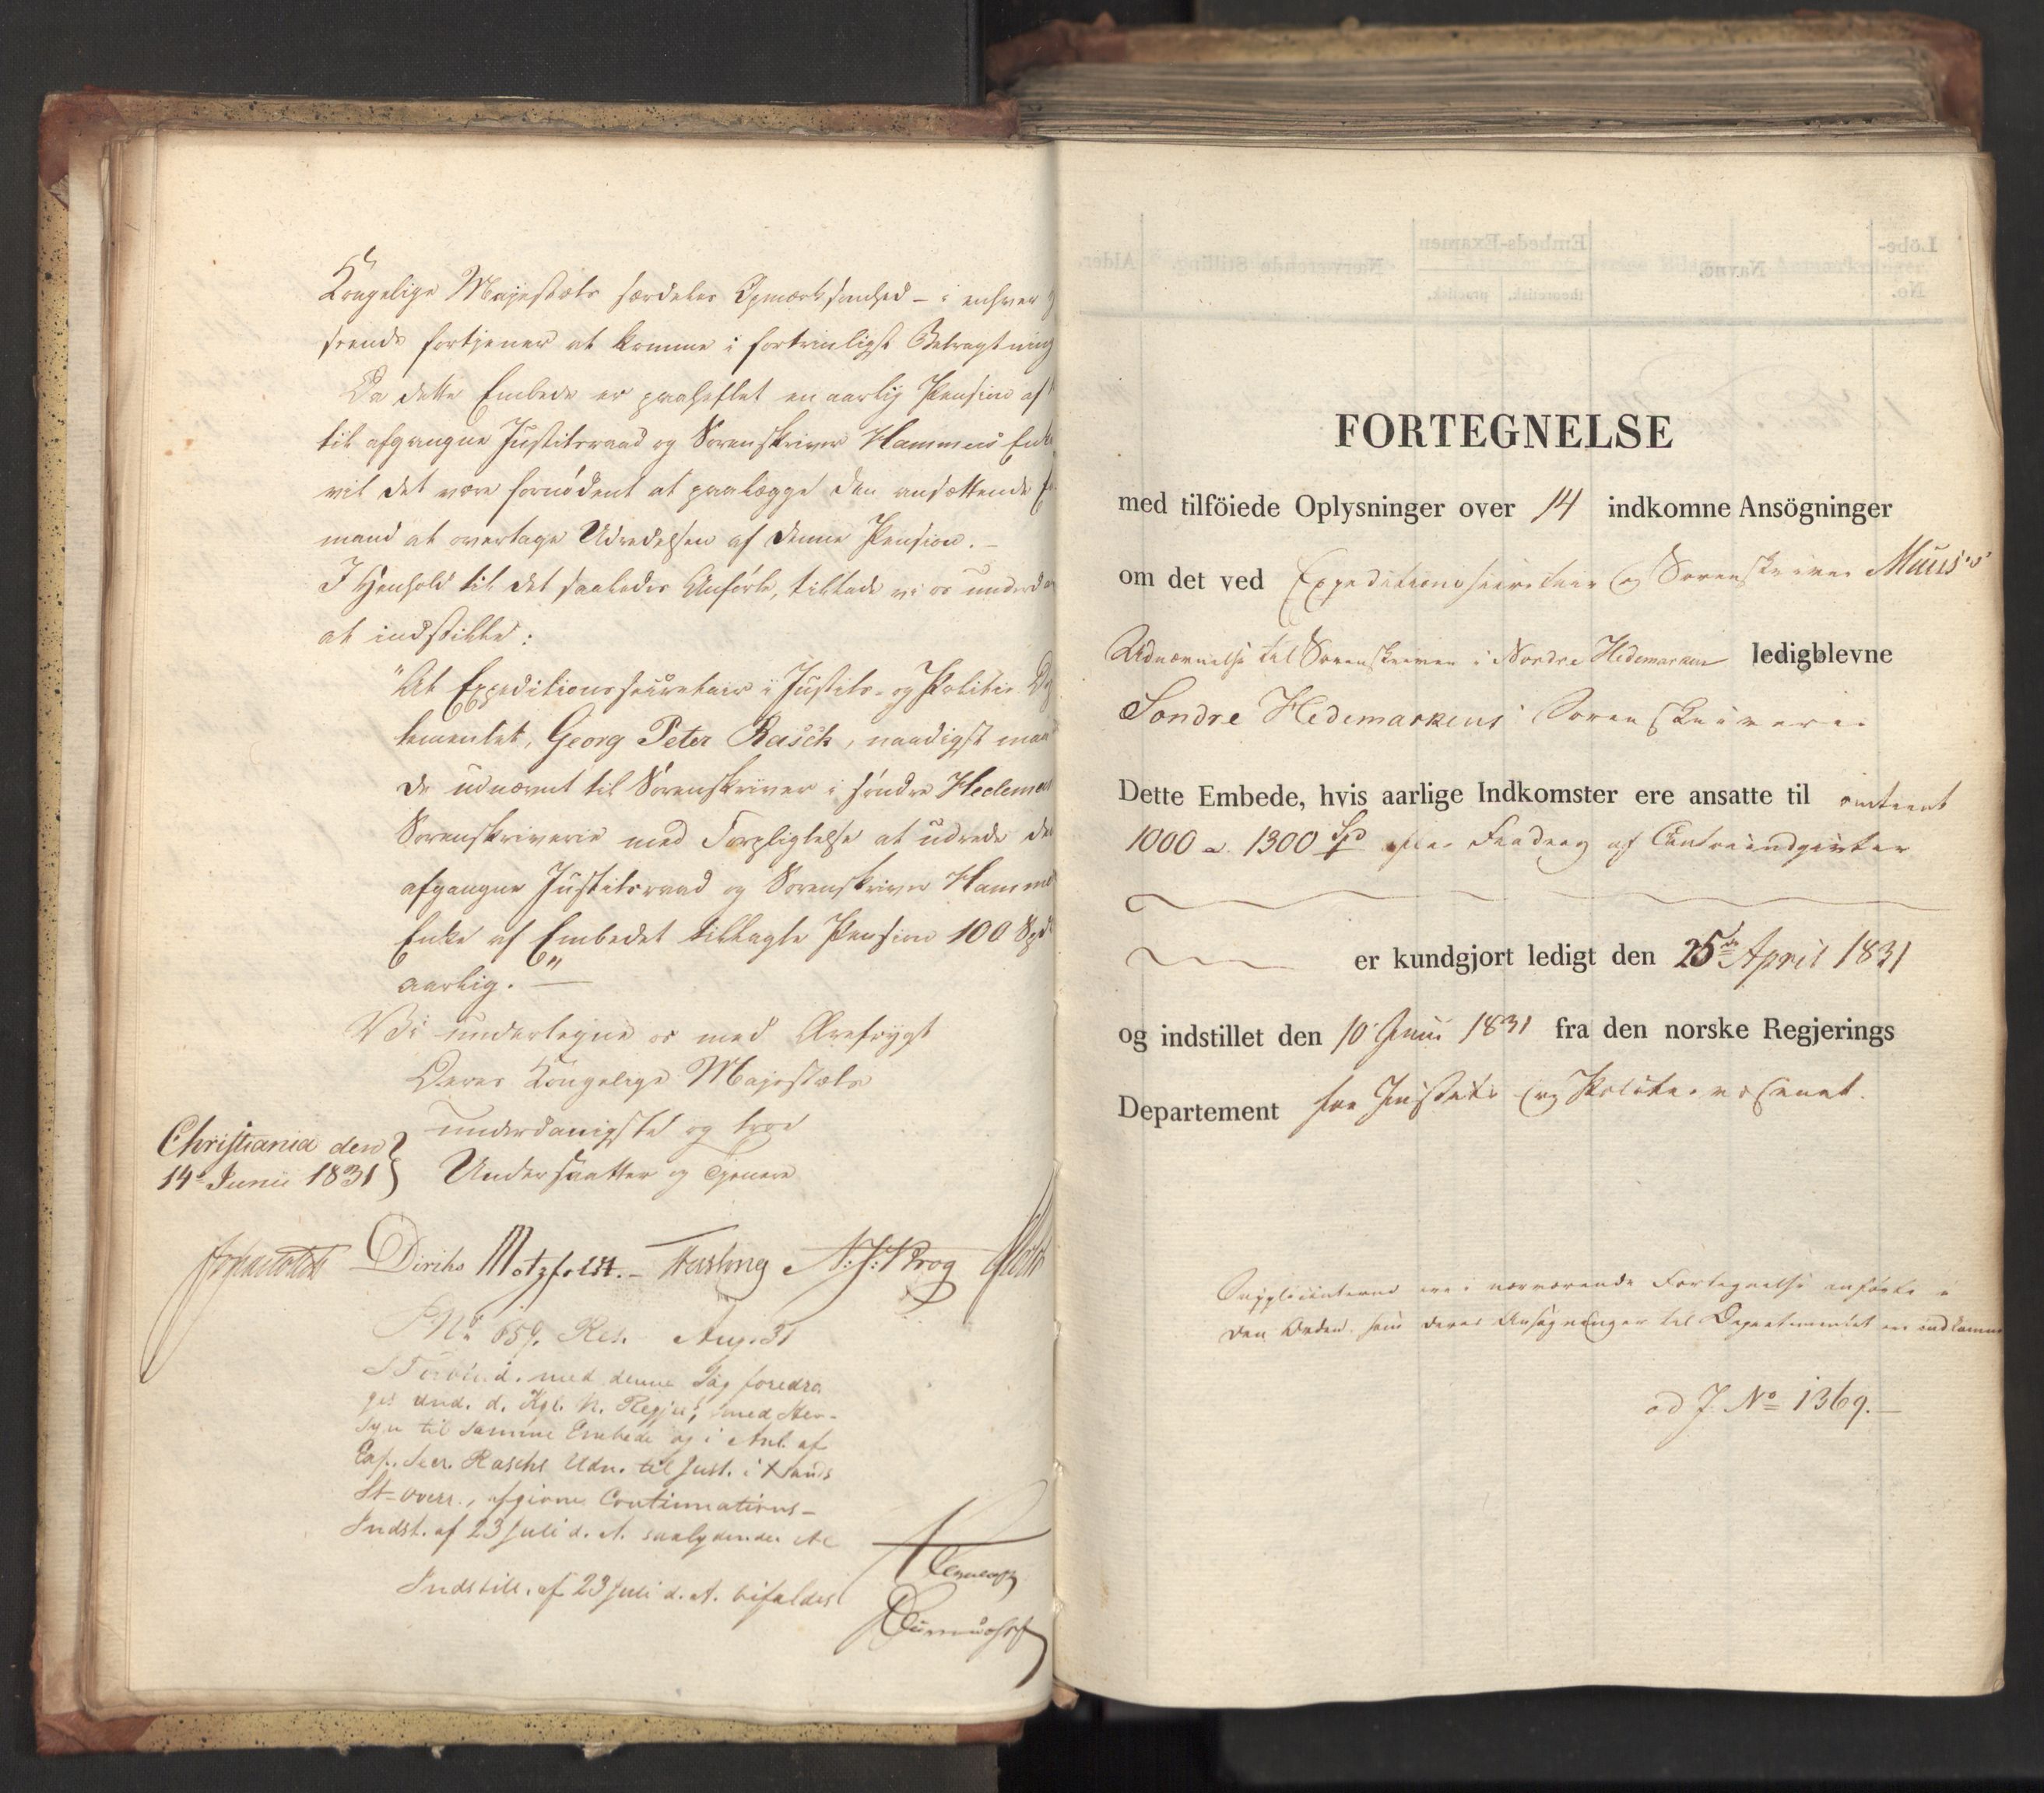 Kongelige Majestæts særdeles Opmærksomhed - i enhver
seende fortjener at komme i fortrinligst Betragtning
Da dette Embede er paaheftet en aarlig Pension af
til afgangne Justitsraad og Sorenskriver Hammers Enke
vil det være fornødent at paalægge den ansættende
mand at overtage Udredelsen af denne Pension. -
I Henhold til det saaledes Anførte, tillade vi os underd
at indstille:
"At Expeditionssecretair i Justits- og Politie De
tementet, Georg Peter Rasch, naadigst maa
de udnævnt til Sorenskriver i søndre Hedemar
Sorenskriverie med Forpligtelse at udrede den
afgangne Justitsraad og Sorenskriver Hammers
Enke af Embedet tillagte Pension 100 Spd
aarlig." -
Vi undertegne os med Ærefrygt
Deres Kongelige Majestæts
underdanigste og troe
Undersaatter og Tjenere
Christiania den
14de Junii 1831
Diriks Motzfeldt. - N: J: Krog
No 659. Res. Aug. 31
Forbind. med denne Dag foredra
get und. d. Kgl. N. Regjer. med Hen-
syn til samme Embede og i Anl. af
Exp. Secr. Raschs Udn. til Just. i
St-overr., afgivne Continuations-
Indst. af 23 Juli d. A. saalydende: Al
Indstill. af 23 Juli d. A. bifaldes
FORTEGNELSE
med tilföiede Oplysninger over 14 indkomne Ansögninger
om det ved Expeditionssecretair og Sorenskriver Muus's
Udnævnelse til Sorenskriver i Nordre Hedemarken ledigblevne
Søndre Hedemarkens Sorenskriverie
Dette Embede, hvis aarlige Indkomster ere ansatte til omtrent
1000 a 1300 Spd efter Fradrag af Contoirudgivter
er kundgjort ledigt den 25de April 1831
og indstillet den 10 Junii 1831 fra den norske Regjerings
Departement for Justits og Politievæsenet.
Supplicanterne ere i nærværende Fortegnelse anførte i
den Orden, som deres Ansøgninger til Departementet ere indkomne
ad J. No 1369. -